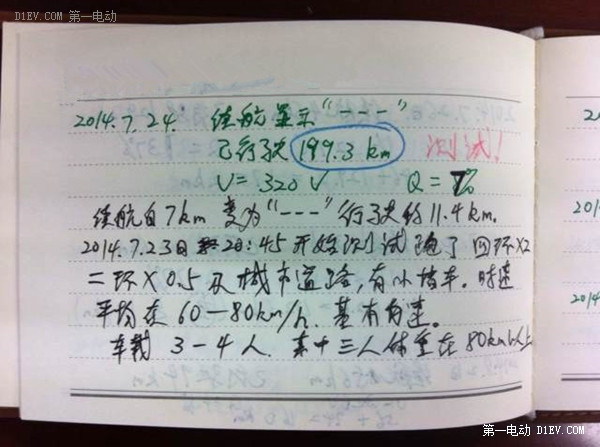 D1EV.COM 第一电动
2014.7.24. 续航显示“---”
已行驶 199.3 km 测试!
V= 320 V Q= 7%
续航自7km 变为“---”行驶约11.4km.
2014.7.23日 20:45开始测试 跑了四环X2
二环X0.5及城市道路,有小堵车。时速
平均在 60—80km/h. 基本匀速。
车载 3-4人. 其中三人体重在80kg以上
第一电动 D1EV.COM